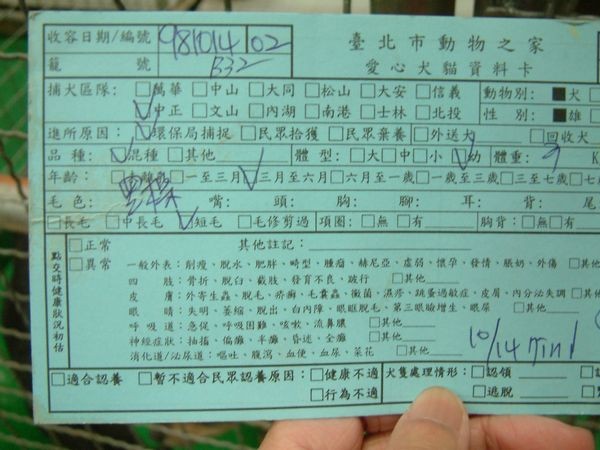 收容日期/編號 981014 02
籠 號 B32
臺北市動物之家
愛心犬貓資料卡
捕犬區隊: □萬華 □中山 □大同 □松山 □大安 □信義 動物別: ■犬
☑中正 □文山 □內湖 □南港 □士林 □北投 性 別: ■雄
進所原因: ☑環保局捕捉 □民眾拾獲 □民眾棄養 □外送犬 □回收犬
品 種: ☑混種 □其他 體 型: □大 □中 □小 ☑幼 體重: K
年齡: □一至三月 ☑三月至六月 □六月至一歲 □一歲至三歲 □三至七歲 □七
毛 色: 嘴: 頭: 胸: 腳: 耳: 背: 尾
□長毛 □中長毛 ☑短毛 □毛修剪過 項圈: □無 □有 胸背: □無 □有
點交時健康狀況初估
□正常 其他註記:
□異常 一般外表: 削瘦、脫水、肥胖、畸型、腫瘤、赫尼亞、虛弱、懷孕、發情、脹奶、外傷 □其他
四 肢: 骨折、脫臼、截肢、發育不良、跛行 □其他
皮 膚: 外寄生蟲、脫毛、疥癬、毛囊蟲、黴菌、濕疹、跳蚤過敏症、皮屑、內分泌失調
眼 睛: 失明、萎縮、脫出、白內障、眼瞼脫毛、第三眼瞼增生、眼屎 □其他
呼 吸 道: 急促、呼吸困難、咳嗽、流鼻膿 □其他
神經症狀: 抽搐、偏癱、半癱、昏迷、全癱 □其他
消化道/泌尿道: 嘔吐、腹瀉、血便、血尿、菜花 □其他
10/14
□適合認養 □暫不適合民眾認養原因: □健康不適 犬隻處理情形: □認領
□行為不適 □逃脫